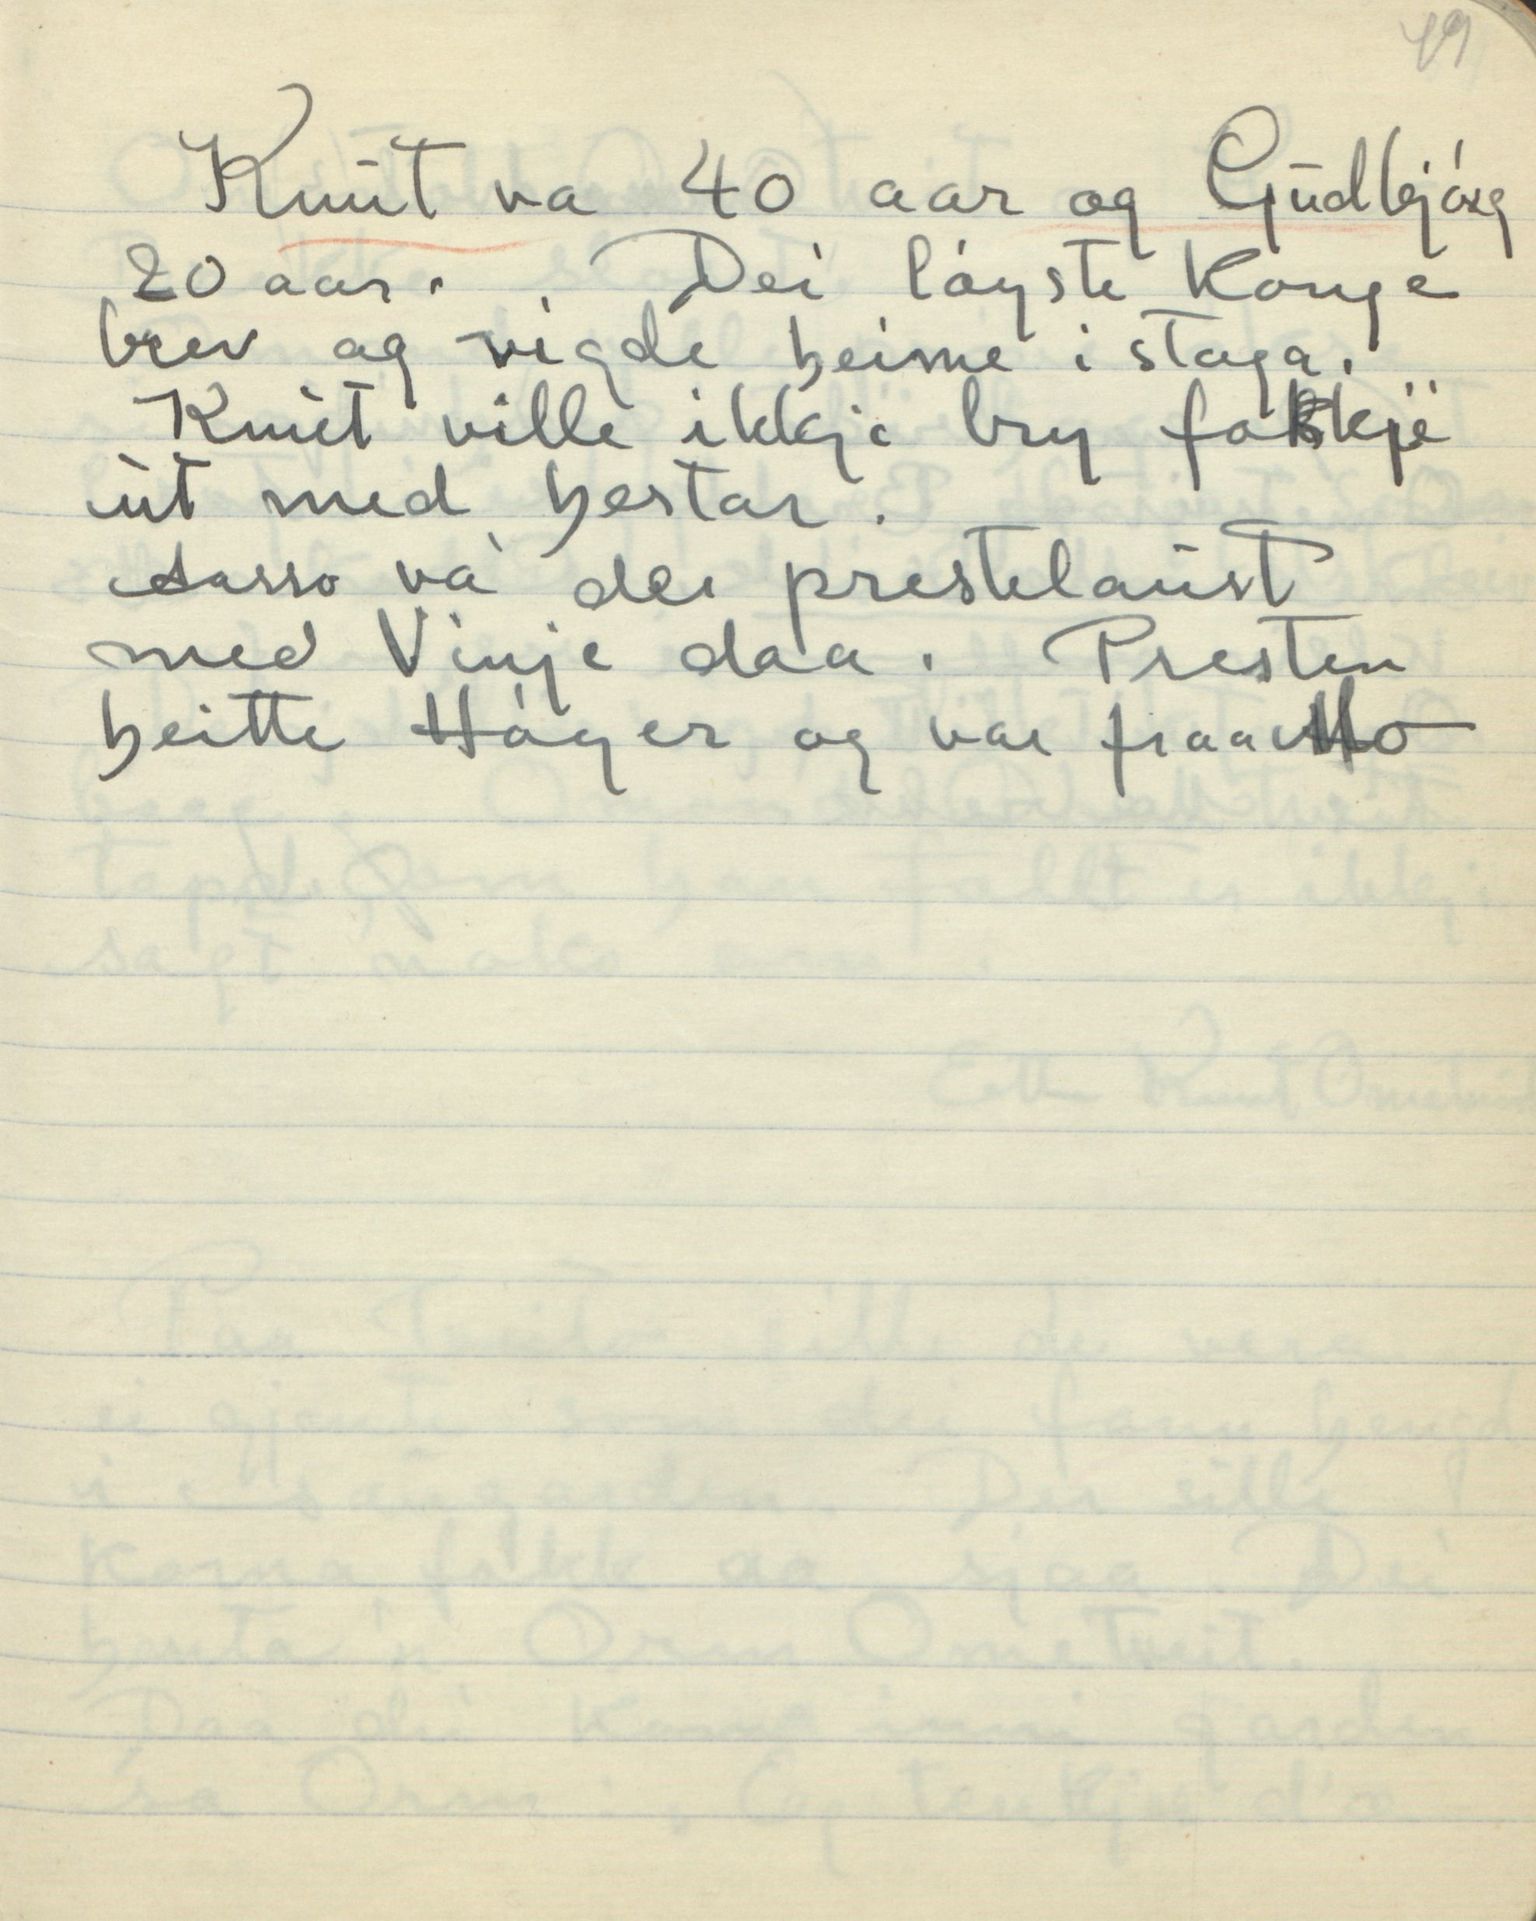 49
Knut va 40 aar og Gudbjórg
20 aar. Dei lóyste Konge
brev og vigde heime i stoga.
Knut ville ikkje bry folkje
ut med hestar.
Aasso va dei prestelaust
med Vinje daa. Presten
heitte Hóyer og var fraa Mo